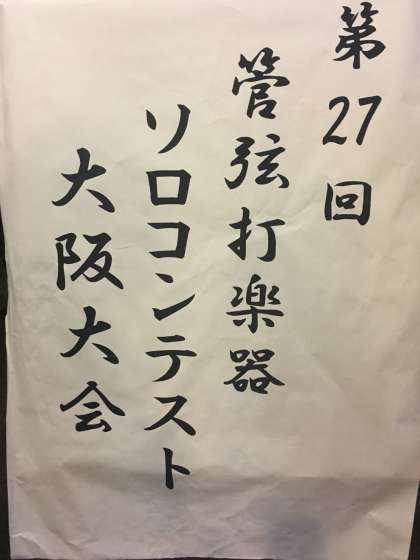 第27回
管弦打楽器
ソロコンテスト
大阪大会